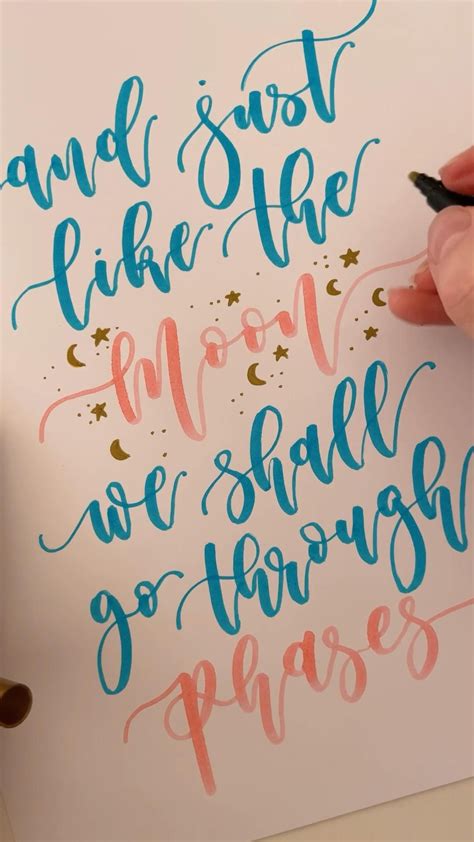 and just
like the
Moon
we shall
go through
phases